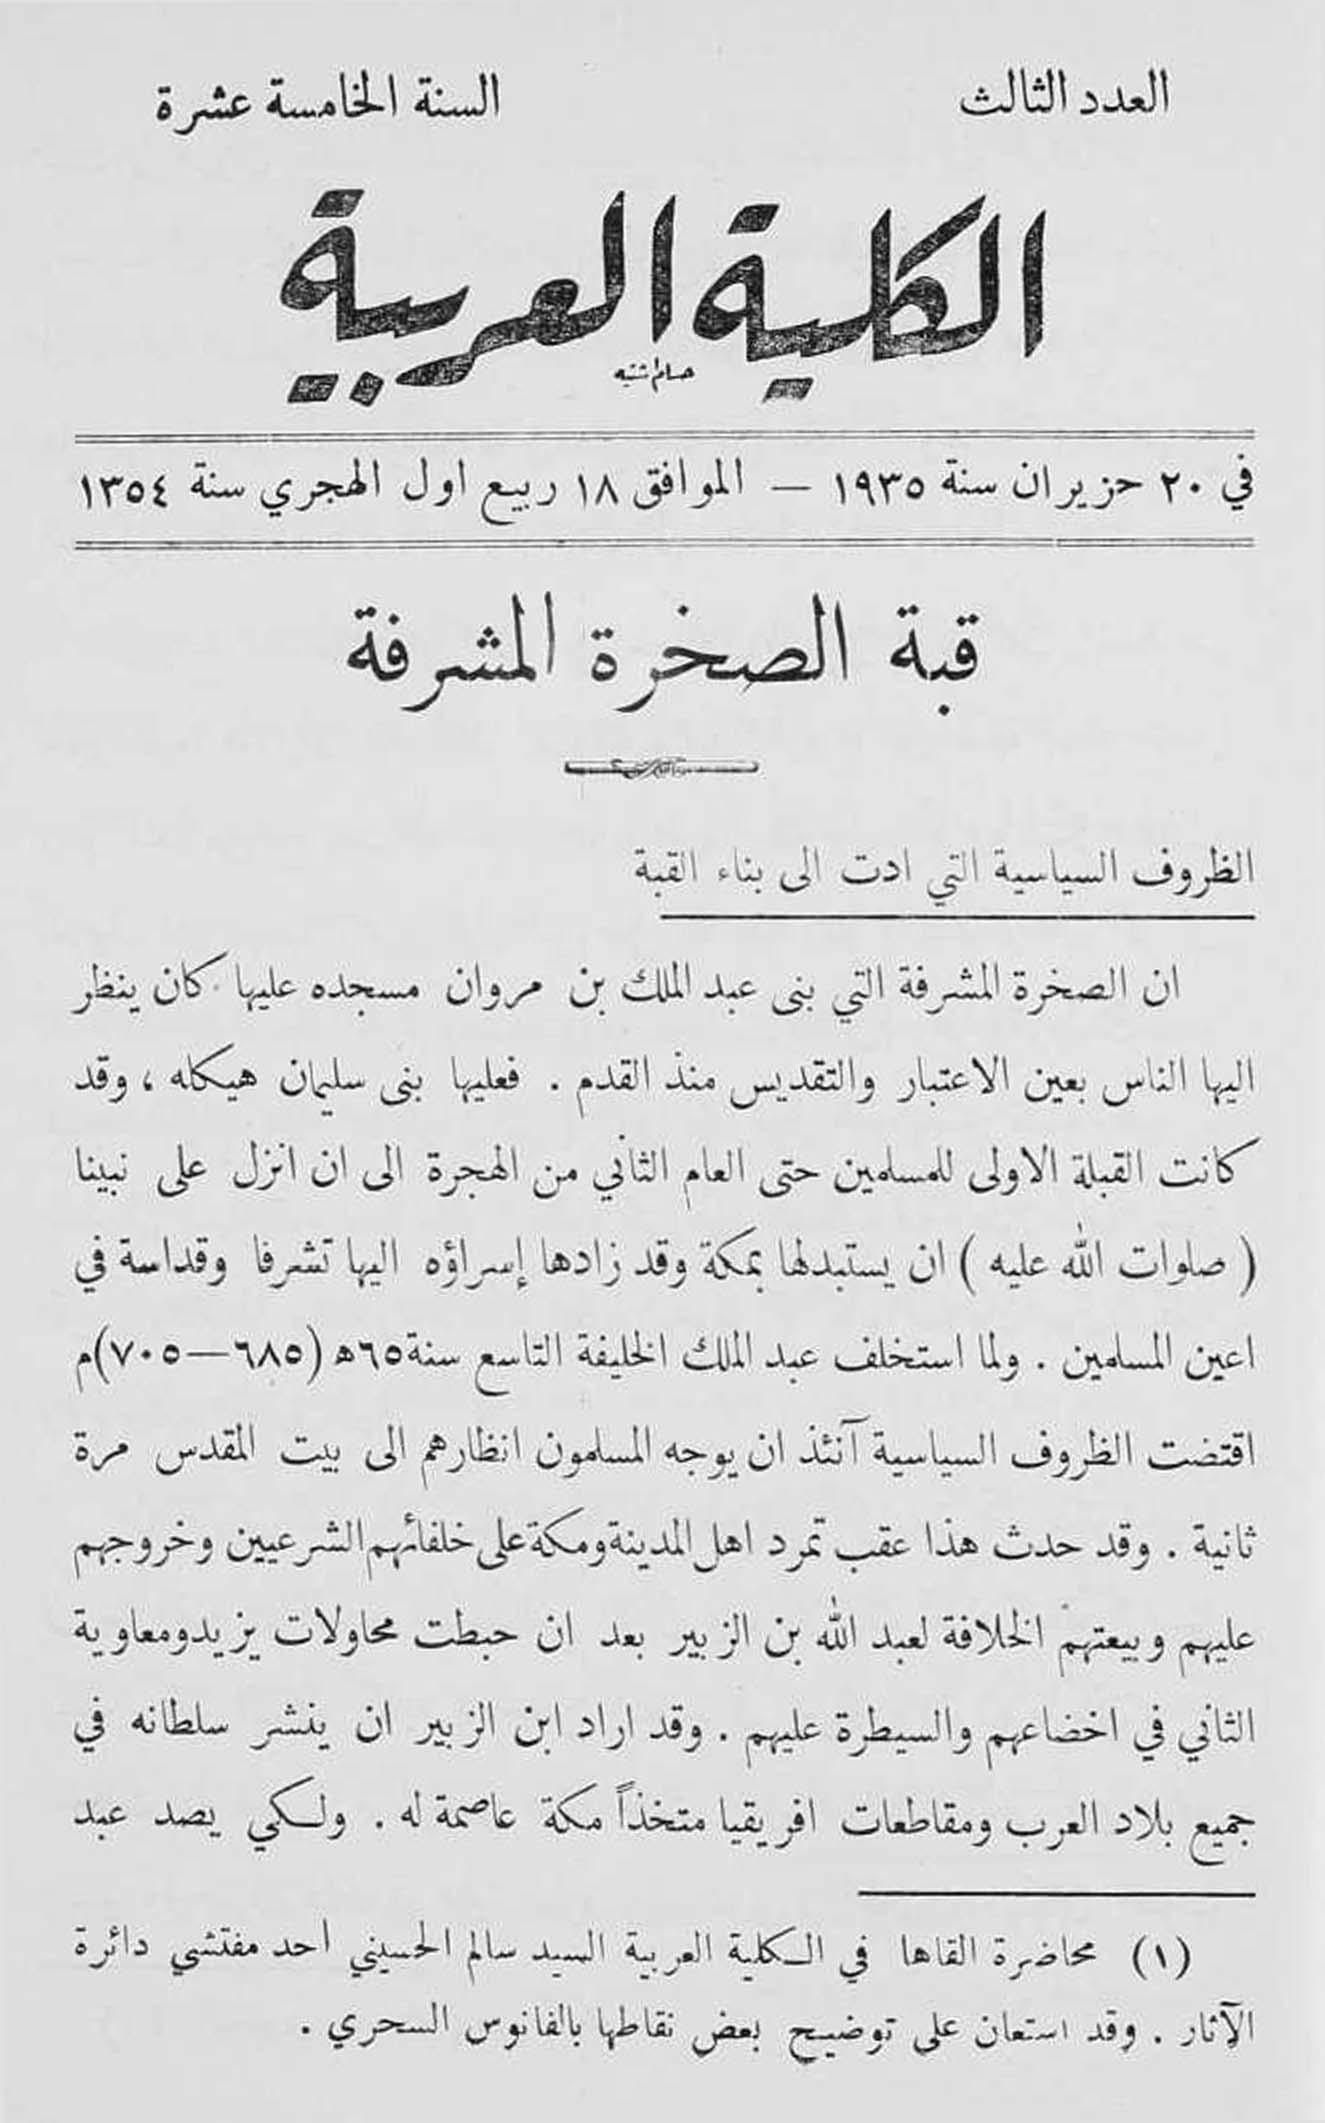 العدد الثالث
السنة الخامسة عشرة
الكلية العربية
في ٢٠ حزيران سنة ١٩٣٥ — الموافق ١٨ ربيع اول الهجري سنة ١٣٥٤
قبة الصخرة المشرفة
الظروف السياسية التي ادت الى بناء القبة
ان الصخرة المشرفة التي بنى عبد الملك بن مروان مسجده عليها كان ينظر
اليها الناس بعين الاعتبار والتقديس منذ القدم . فعليها بنى سليمان هيكله ، وقد
كانت القبلة الاولى للمسلمين حتى العام الثاني من الهجرة الى ان انزل على نبينا
( صلوات الله عليه ) ان يستبدلها بمكة وقد زادها إسراؤه اليها تشرفا وقداسة في
اعين المسلمين . ولما استخلف عبد الملك الخليفة التاسع سنة ٦٥ه (٦٨٥—٧٠٥)م
اقتضت الظروف السياسية آنئذ ان يوجه المسلمون انظارهم الى بيت المقدس مرة
ثانية . وقد حدث هذا عقب تمرد اهل المدينة ومكة على خلفائهم الشرعيين وخروجهم
عليهم وبيعتهم الخلافة لعبد الله بن الزبير بعد ان حبطت محاولات يزيد ومعاوية
الثاني في اخضاعهم والسيطرة عليهم . وقد اراد ابن الزبير ان ينشر سلطانه في
جميع بلاد العرب ومقاطعات افريقيا متخذاً مكة عاصمة له . ولكي يصد عبد
(١) محاضرة القاها في الكلية العربية السيد سالم الحسيني احد مفتشي دائرة
الآثار . وقد استعان على توضيح بعض نقاطها بالفانوس السحري .